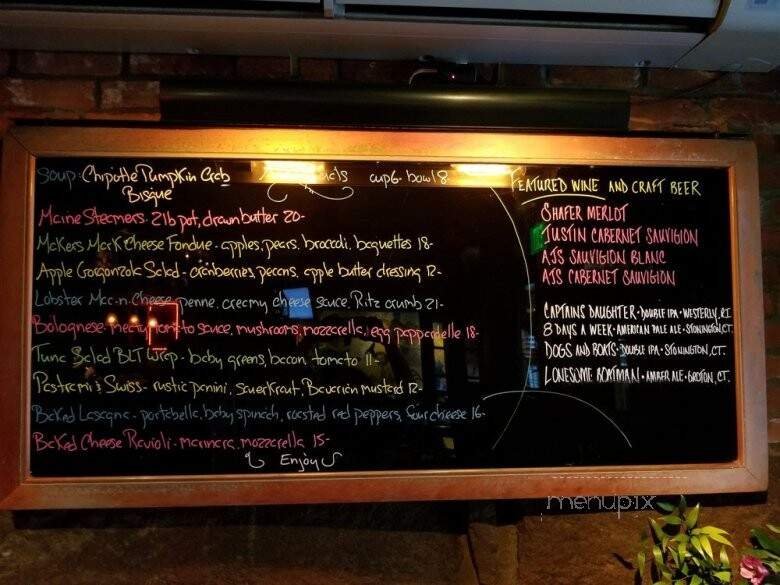 Soup: Chipotle Pumpkin Crab cup 6- bowl 8-
Bisque
Maine Steamers- 2 lb pot, drawn butter 20-
Makers Mark Cheese Fondue- apples, pears, broccoli, baguettes 18-
Apple Gorgonzola Salad- cranberries, pecans, apple butter dressing 12-
Lobster Mac-n-Cheese penne, creamy cheese sauce, Ritz crumb 21-
Bolognese- meaty tomato sauce, mushrooms, mozzarella, egg pappardelle 18-
Tuna Salad BLT Wrap- baby greens, bacon, tomato 11-
Pastrami & Swiss- rustic panini, sauerkraut, Bavarian mustard 12-
Baked Lasagna- portabella, baby spinach, roasted red peppers, four cheese 16-
Baked Cheese Ravioli- marinara, mozzarella 15-
Enjoy
FEATURED WINE AND CRAFT BEER
SHAFER MERLOT
JUSTIN CABERNET SAUVIGION
AJS SAUVIGION BLANC
AJS CABERNET SAUVIGION
CAPTAINS DAUGHTER • DOUBLE IPA • WESTERLY, R.I.
8 DAYS A WEEK • AMERICAN PALE ALE • STONINGTON, CT.
DOGS AND BOATS • DOUBLE IPA • STONINGTON, CT.
LONESOME BOATMAN • AMBER ALE • GROTON, CT.
menupix